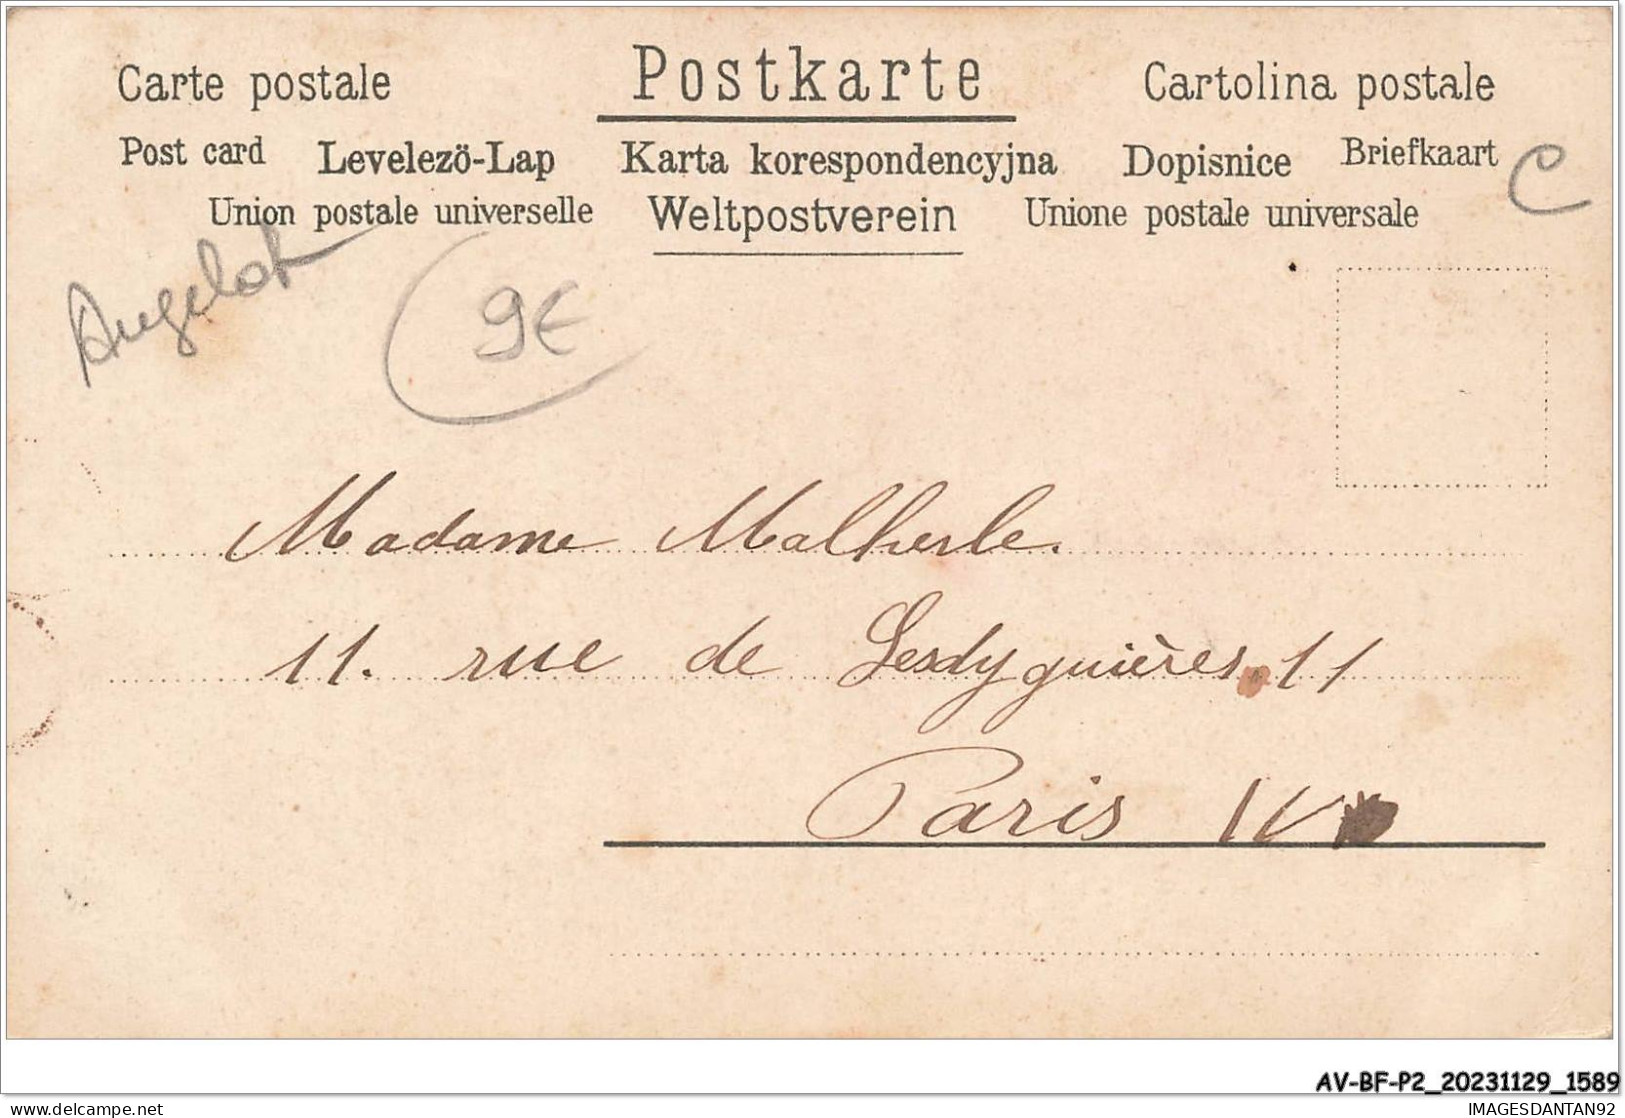 Carte postale Postkarte Cartolina postale
Post card Levelezö-Lap Karta korespondencyjna Dopisnice Briefkaart C
Union postale universelle Weltpostverein Unione postale universale
Angelot
9€
Madame Malherbe.
11. rue de Lesdyguières. 11
Paris IV
AV-BF-P2_20231129_1589
delcampe.net
IMAGESDANTAN92